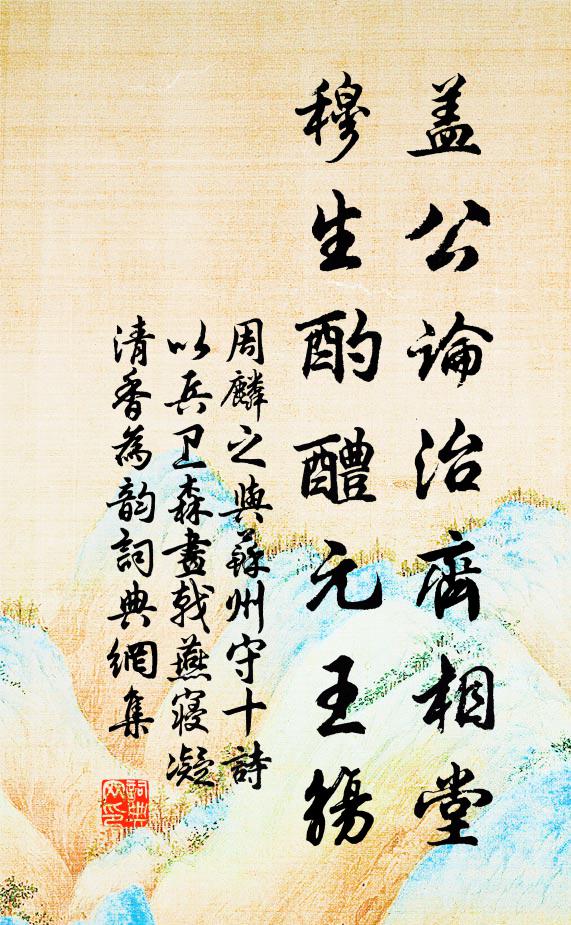 盖公論治齊相堂
穆生酌醴元王觴
周麟之與蘇州守十詩
以兵卫森畫戟燕寢凝
清香為韵詞典網集